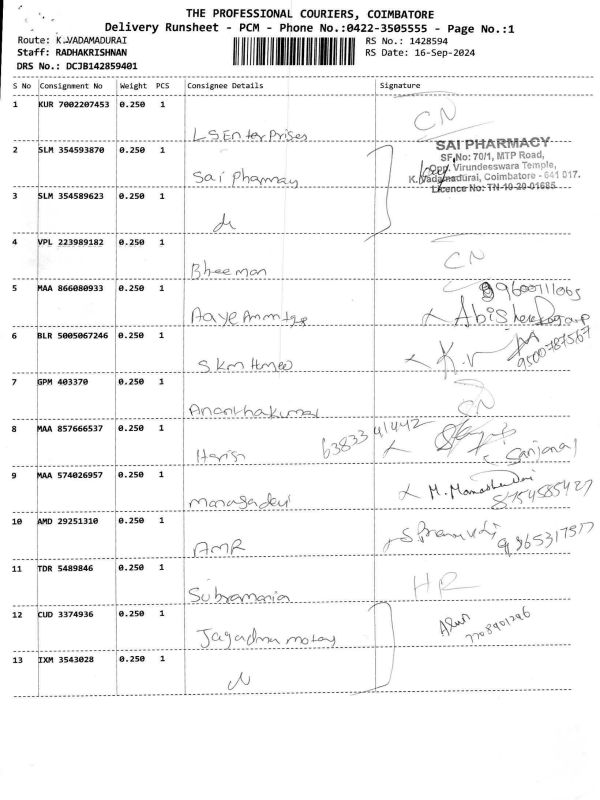 THE PROFESSIONAL COURIERS, COIMBATORE
Delivery Runsheet - PCM - Phone No.:0422-3505555 - Page No.:1
Route: K.VADAMADURAI RS No.: 1428594
Staff: RADHAKRISHNAN RS Date: 16-Sep-2024
DRS No.: DCJB142859401
S No Consignment No Weight PCS Consignee Details Signature
1 KUR 7002207453 0.250 1 CN
LSEnterprises
2 SLM 354593870 0.250 1 SAI PHARMACY
SF.No: 70/1, MTP Road,
Sai Pharmay Opp. Virundeeswara Temple,
K.Vadamadurai, Coimbatore - 641 017.
Licence No: TN-10-20-01685
3 SLM 354589623 0.250 1
4 VPL 223989182 0.250 1
Bheeman CN
5 MAA 866080933 0.250 1 9600711065
6 BLR 5005067246 0.250 1 K.v
9500787567
7 GPM 403370 0.250 1
Ananthakumar CN
8 MAA 857666537 0.250 1 6383341442
Harish Sanjana
9 MAA 574026957 0.250 1
manasadevi 8754585427
10 AMD 29251310 0.250 1
AMR 9965317577
11 TDR 5489846 0.250 1
Subramania HR
12 CUD 3374936 0.250 1
13 IXM 3543028 0.250 1